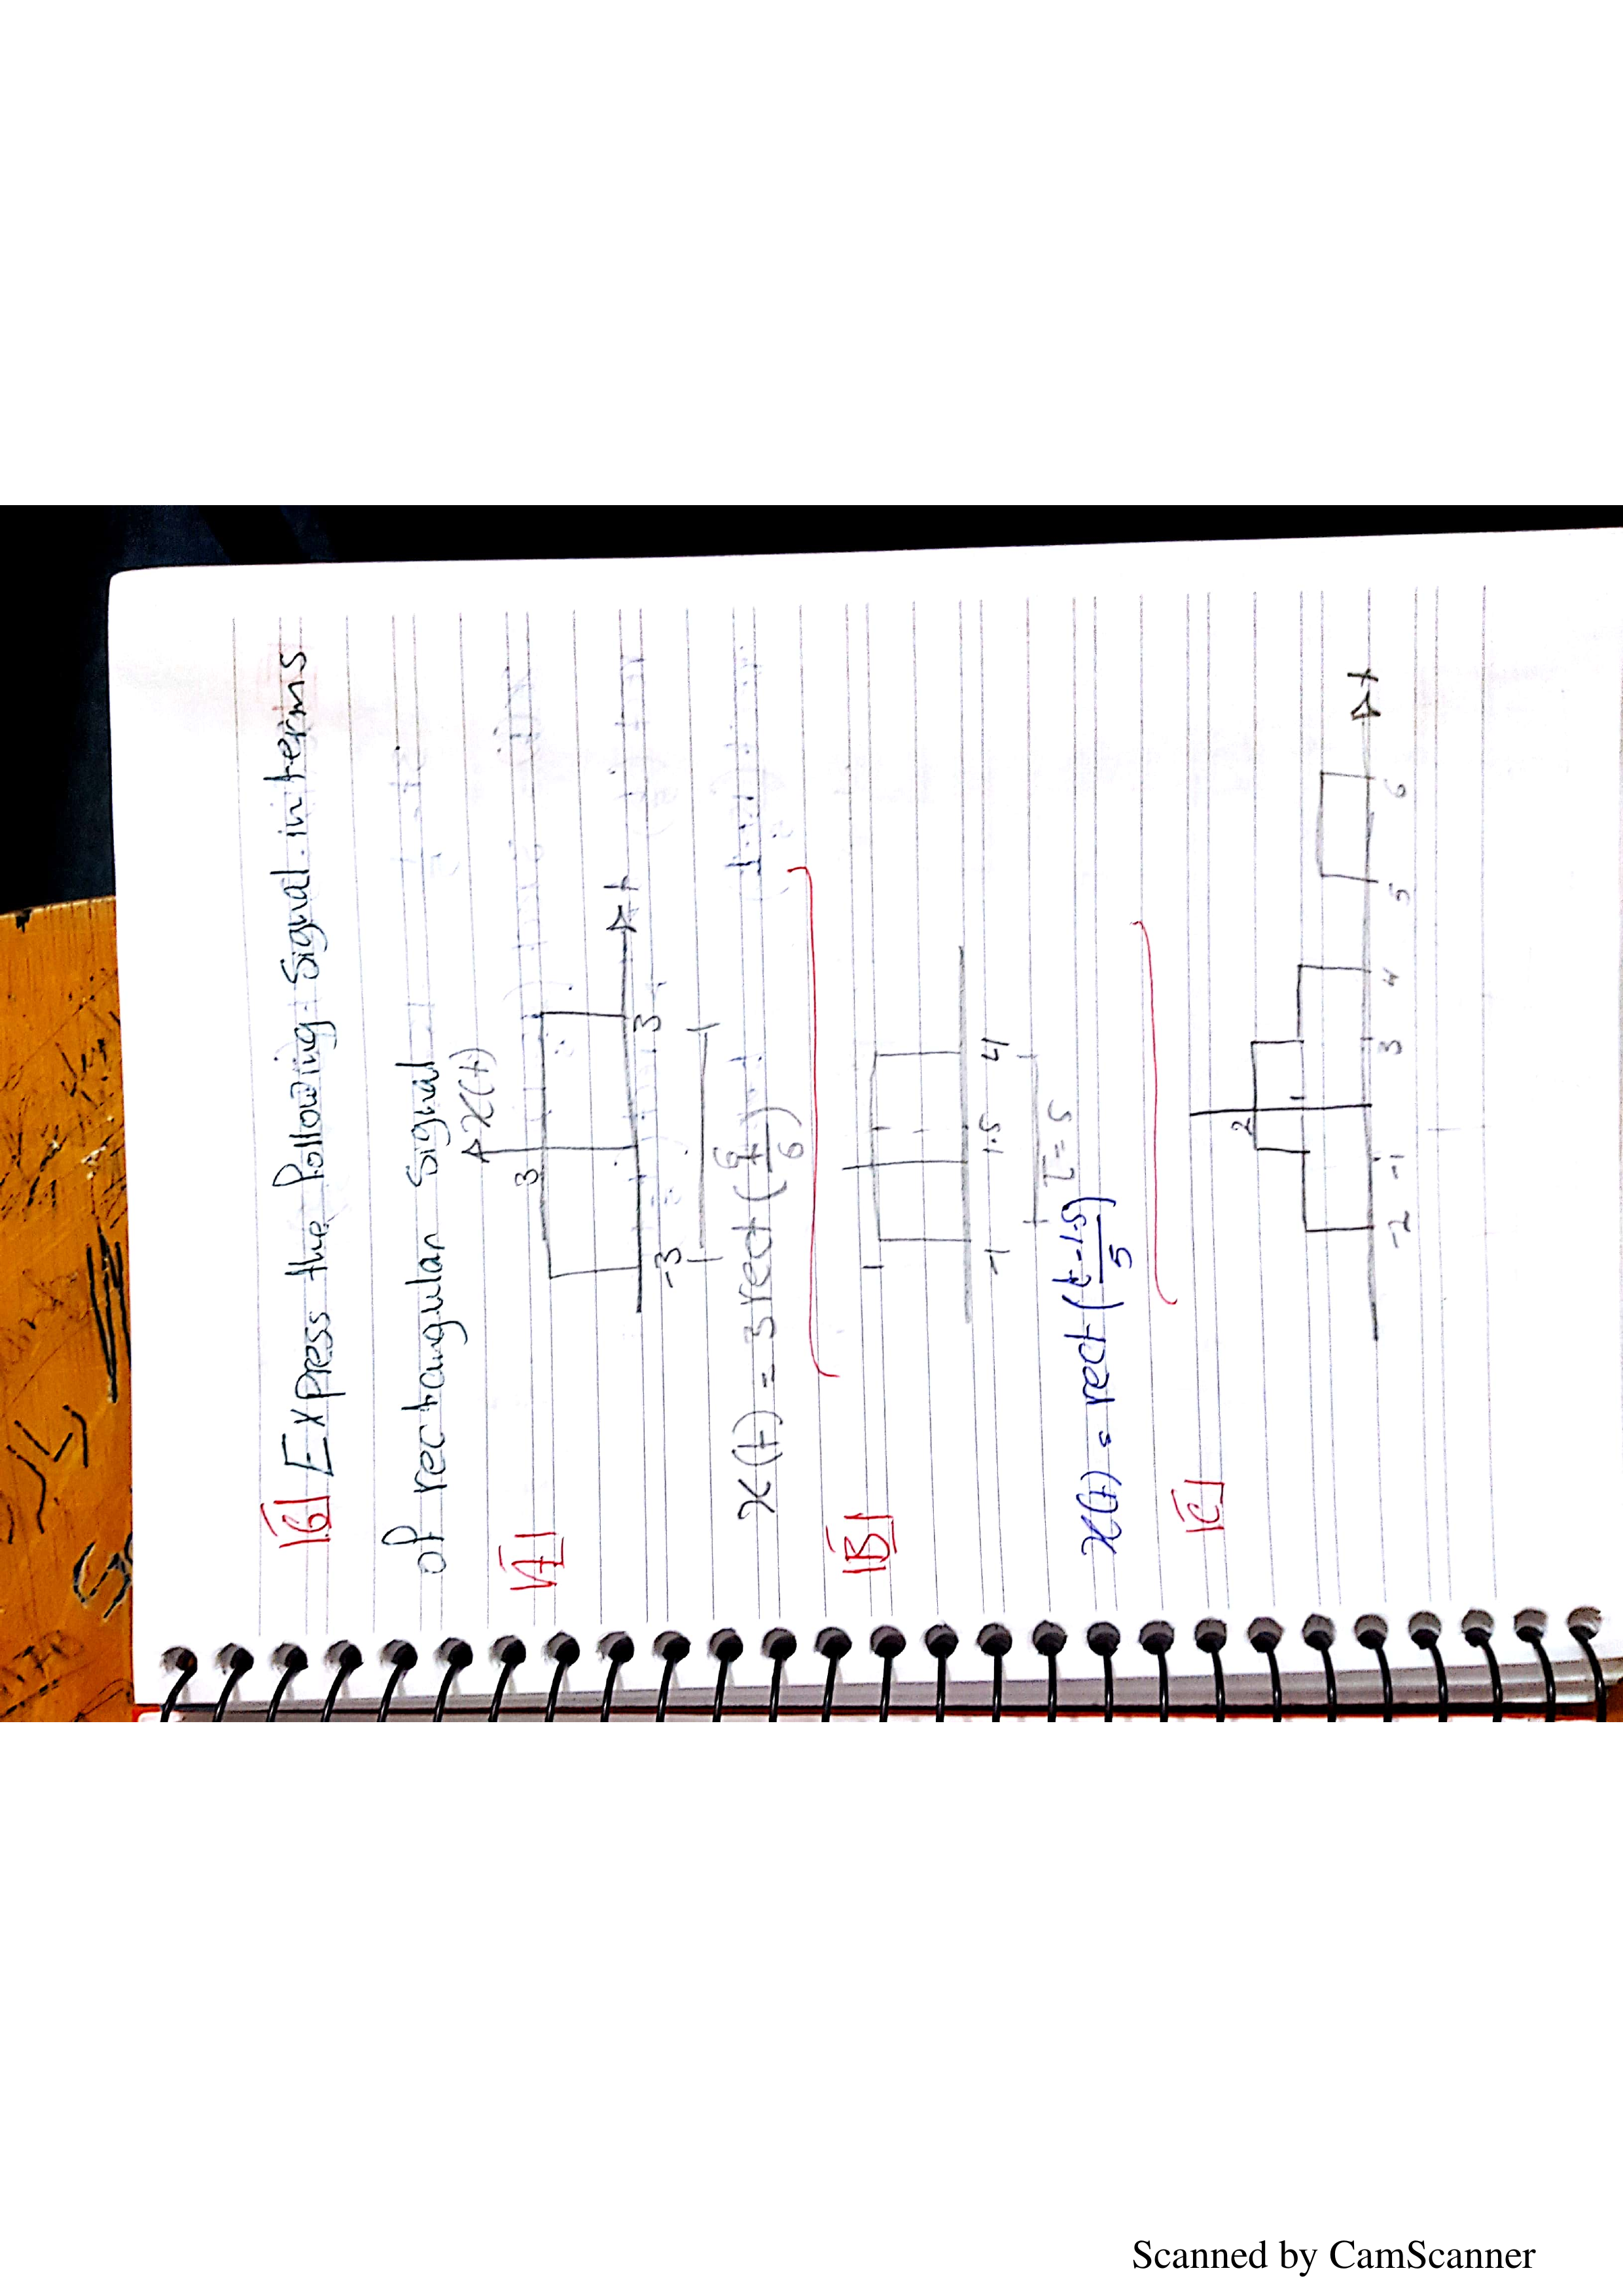 6 Express the Following Signal in terms
of rectangular Signal
A
x(t)
3
t
-3 3
6
x(t) = 3 rect (t/6)
B
1
-1 1.5 4
T = 5
x(t) = rect (t-1.5/5)
C
2
1
t
-2 -1 3 4 5 6
Scanned by CamScanner